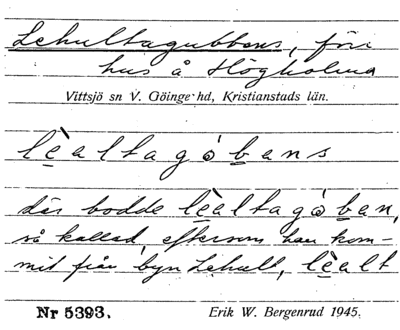 Lehultagubbens, förr
hus å Högholma
Vittsjö sn V. Göinge hd, Kristianstads län.
lèaltagȯbans
där bodde lèaltagȯban,
så kallad, eftersom han kom-
mit från byn Lehult, lèalt
Nr 5393.
Erik W. Bergenrud 1945.